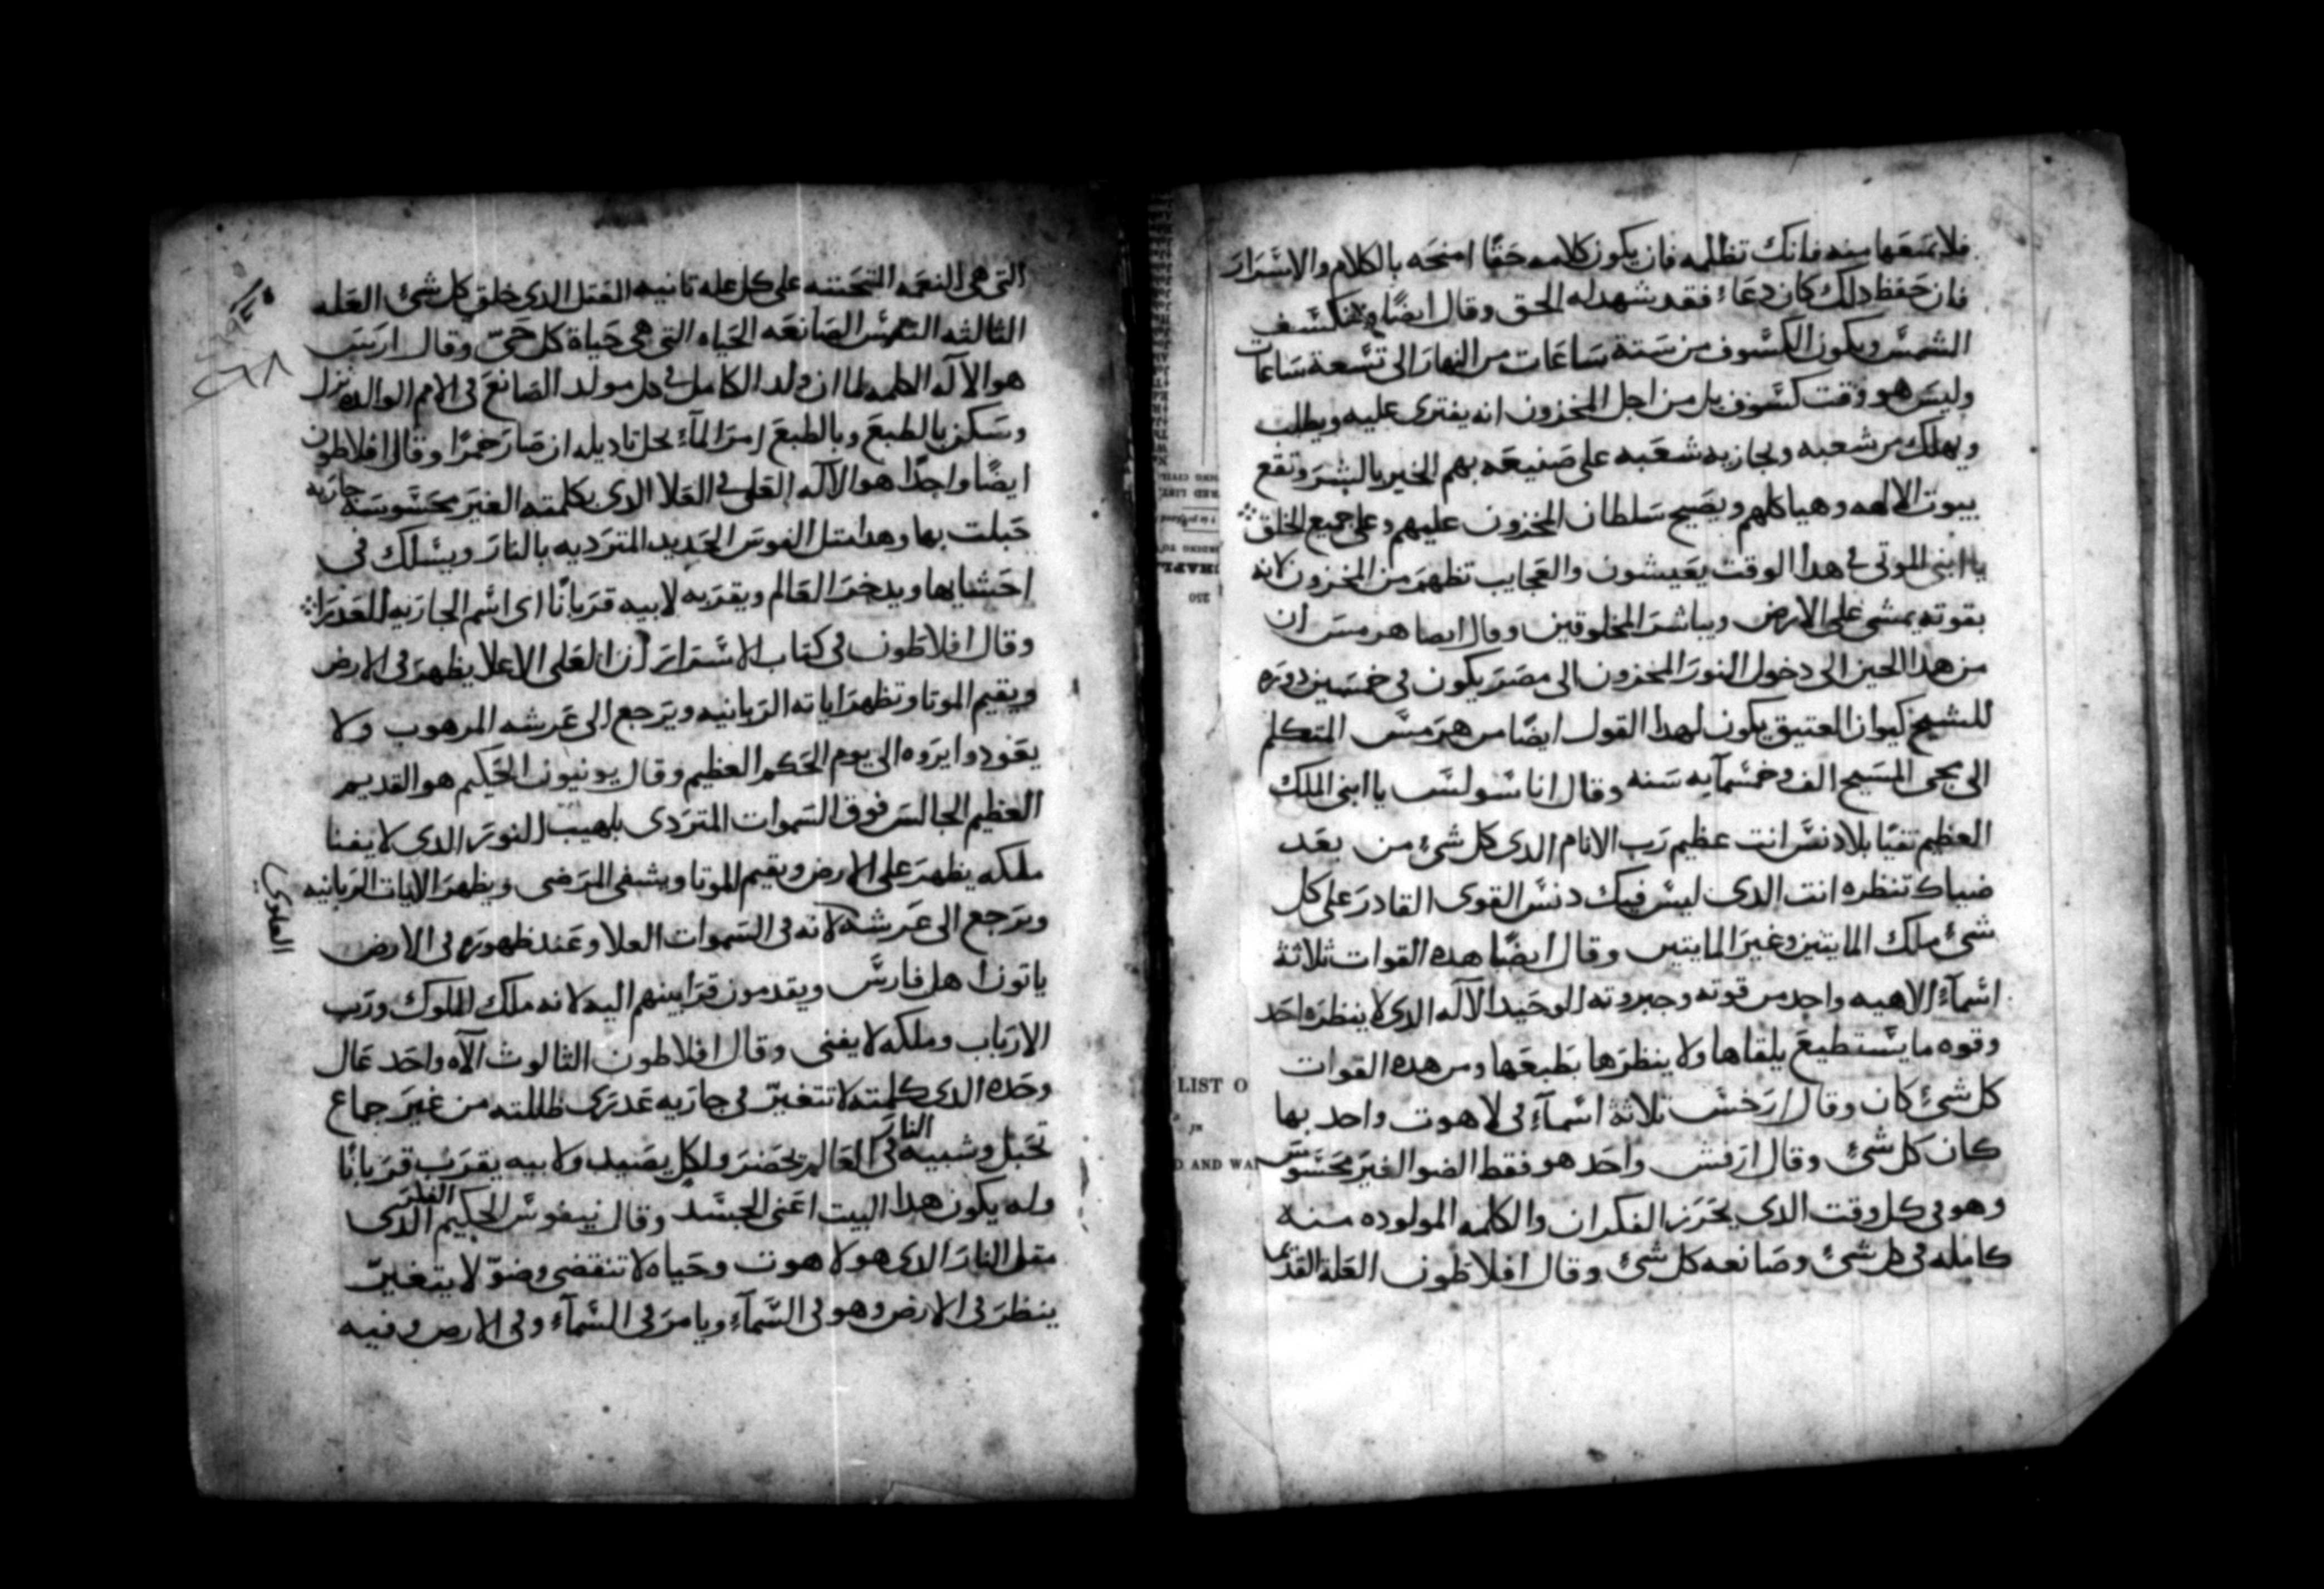 فلا تمنعها منه فانك تظلمه فان يكون كلامه حقًا امنحه بالكلام والاسرار
فان حفظ دلك كان دعاء فقد شهد له الحق وقال ايضًا وتنكسف
الشمس ويكون الكسوف من ستة ساعات من النهار الى تسعة ساعات
وليس هو وقت كسوف بل من اجل المخزون انه يفترى عليه ويطلب
ويهلك من شعبه ويجازيه شعبه على صنيعه بهم الخير بالشر وتقع
بيوت الالهه وهياكلهم ويصيح سلطان المخزون عليهم وعلى جميع الخلق
يا ابنى الموتى في هدا الوقت يعيشون والعجايب تظهر من المخزون لانه
بقوته يمشى على الارض ويباشر المخلوقين وقال ايضا هرمس ان
من هدا الحين الى دخول النور المخزون الى مصر يكون في خمسين دوره
للشيخ كيوان العتيق يكون لهدا القول ايضًا من هرمس المتكلم
الى مجى المسيح الف وخمسمايه سنه وقال اناسولس يا ابنى الملك
العظيم تفيًا بلا دنس انت عظيم رب الانام الدى كل شئ من بعد
ضياك تنظره انت الدى ليس فيك دنس القوى القادر على كل
شئ ملك المايتين وغير المايتين وقال ايضًا هده القوات ثلاثة
اسماء الاهيه واحد من قوته وجبروته الوحيد الآله الدى لا ينظره احد
وقوه ما يستطيع يلقاها ولا ينظرها بطبعها ومن هده القوات
كل شئ كان وقال ارخس ثلاثة اسماء فى لاهوت واحد بها
كان كل شئ وقال ارفس واحد هو فقط الضو الغير محسوس
وهو فى كل وقت الدى يحرز الفكران والكلمه المولوده منه
كامله فى كل شئ وصانعه كل شئ وقال افلاطون العلة القدى
التى هى النعمه المتحننه على كل عله تانيه العقل الدى خلق كل شئ العله
الثالثه الصانعه الحياه التى هى حياة كل حى وقال ارسس
هو الآله الكلمه لما ان ولد الكامل فى كل مولد الصانع فى الام الوالده نزل
وسكن بالطبع وبالطبع امر الماء لحل تاديله ان صار خمرًا وقال افلاطون
ايضًا واحدًا هو الآله العلى فى العلا الدى بكلمته الغير محسوسة جاريه
حبلت بها وهدا متل القوس الجديد المترديه بالنار ويسلك فى
احشايها ويدخر العالم ويقربه لابيه قربانًا اى اسم الجاريه للعدرا
وقال افلاطون فى كتاب الاسرار ان العلى الاعلا يظهر فى الارض
ويقيم الموتا وتظهر اياته الربانيه ويرجع الى عرشه المرهوب ولا
يعودوا يروه الى يوم الحكم العظيم وقال يونيون الحكيم هو القديم
العظيم الجالس فوق السموات المتردى بلهيب النور الدى لا يفنا
ملكه يظهر على الارض ويقيم الموتا ويشفى المرضى ويظهر الايات الربانيه
ويرجع الى عرشه لانه فى السموات العلا وعند ظهوره فى الارض
العلوي
ياتون اهل فارس ويقدمون قرابينهم اليه لانه ملك الملوك ورب
الارباب وملكه لا يفنى وقال افلاطون الثالوث الآه واحد عال
وحده الدى كلمته لا تتغير فى جاريه عدرى ظللته من غير جماع
تحبل وشبيه النار فى العالم يحضر ولكل يصيد ولابيه يقرب قربانًا
وله يكون هدا البيت اعنى الجسد وقال نيفوس الحكيم الدى
متل النار الدى هو لاهوت وحياه لا تنقضى وضو لا يتغير
ينظر فى الارض وهو فى السماء ويامر فى السماء وفى الارض وفيه
LIST O
D AND WA
250